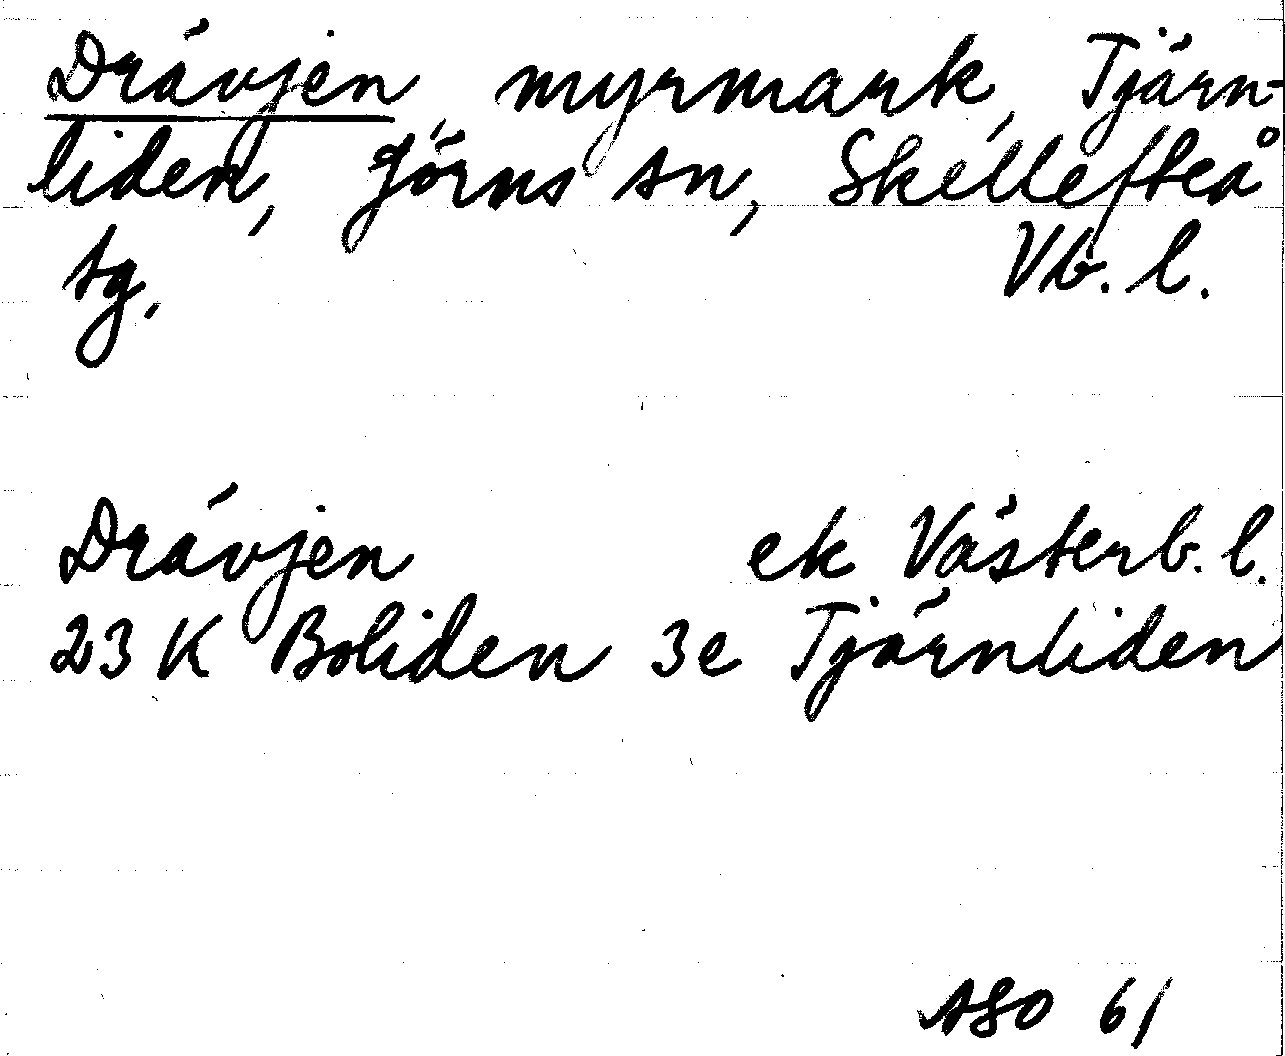 Drävjen, myrmark, Tjärn-
liden, Jörns sn, Skellefteå
tg, Vb. l.
Drävjen ek Västerb. l.
23 K Boliden 3e Tjärnliden
ASO 61